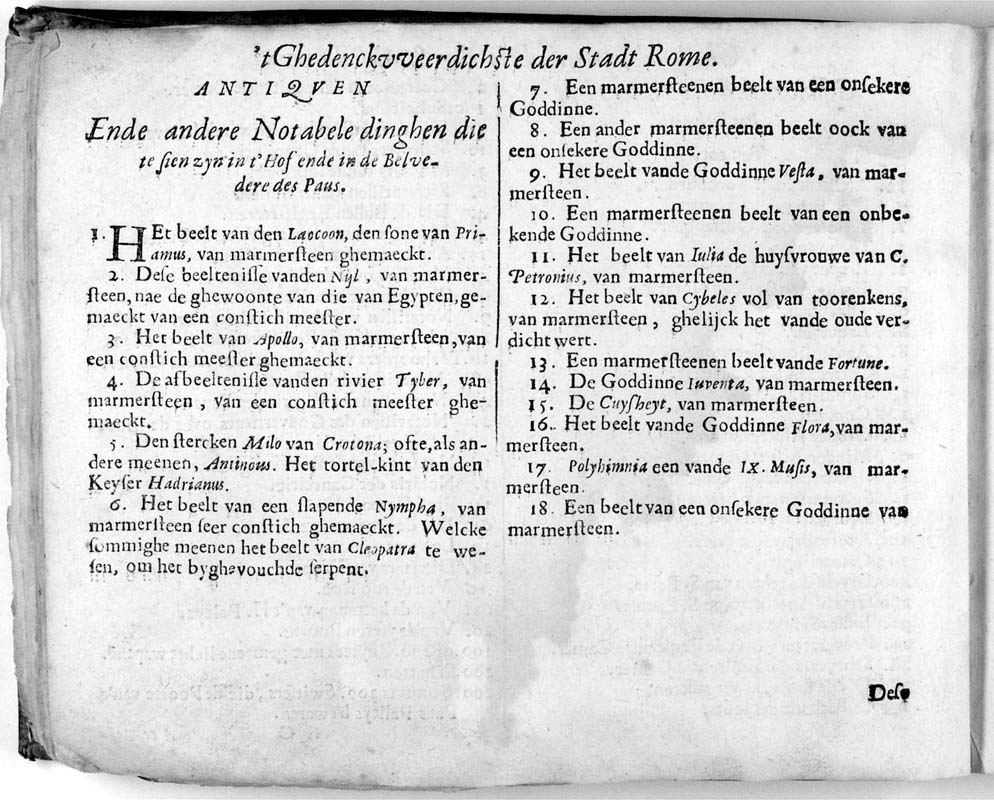 'tGhedenckvveerdichste der Stadt Rome.
ANTIQVEN
Ende andere Notabele dinghen die
te sien zyn in t'Hof ende in de Belve-
dere des Paus.
1. HEt beelt van den Laocoon, den sone van Pri-
amus, van marmersteen ghemaeckt.
2. Dese beeltenisse vanden Nyl, van marmer-
steen, nae de ghewoonte van die van Egypten, ge-
maeckt van een constich meester.
3. Het beelt van Apollo, van marmersteen, van
een constich meester ghemaeckt.
4. De afbeeltenisse vanden rivier Tyber, van
marmersteen, van een constich meester ghe-
maeckt.
5. Den stercken Milo van Crotona; ofte, als an-
dere meenen, Antinous. Het tortel-kint van den
Keyser Hadrianus.
6. Het beelt van een slapende Nympha, van
marmersteen seer constich ghemaeckt. Welcke
sommighe meenen het beelt van Cleopatra te we-
sen, om het byghevouchde serpent.
7. Een marmersteenen beelt van een onsekere
Goddinne.
8. Een ander marmersteenen beelt oock van
een onsekere Goddinne.
9. Het beelt vande Goddinne Vesta, van mar-
mersteen.
10. Een marmersteenen beelt van een onbe-
kende Goddinne.
11. Het beelt van Iulia de huysvrouwe van C.
Petronius, van marmersteen.
12. Het beelt van Cybeles vol van toorenkens,
van marmersteen, ghelijck het vande oude ver-
dicht wert.
13. Een marmersteenen beelt vande Fortune.
14. De Goddinne Iuventa, van marmersteen.
15. De Cuysheyt, van marmersteen.
16. Het beelt vande Goddinne Flora, van mar-
mersteen.
17. Polyhimnia een vande IX. Musis, van mar-
mersteen.
18. Een beelt van een onsekere Goddinne van
marmersteen.
Dese